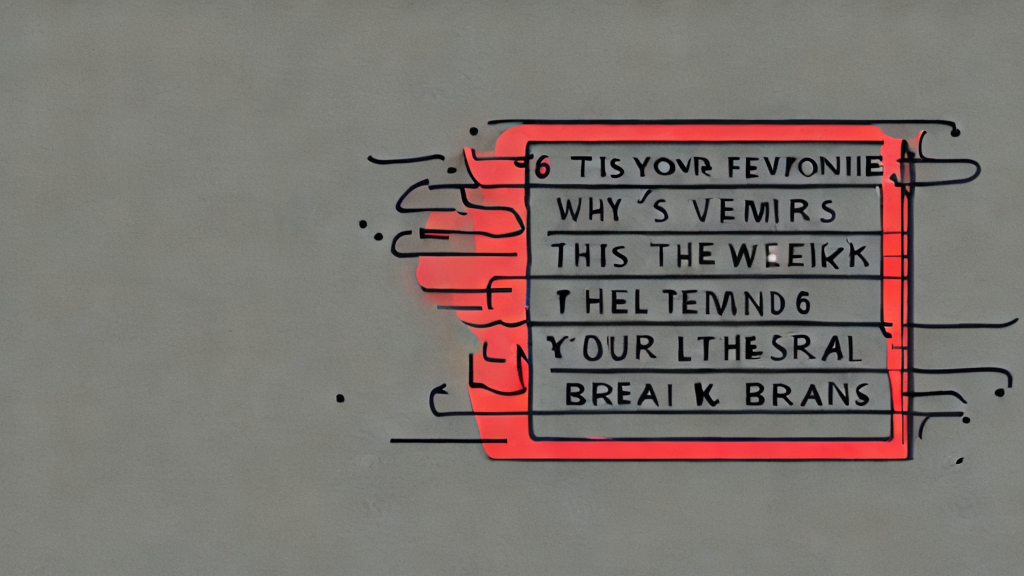 6 TIS YOVR FEVPONIIE
WHY 'S VEMIRS
THIS THE WEEIKK
THEL TEMND6
YOUR LTHESRAL
BREAI K BRANS